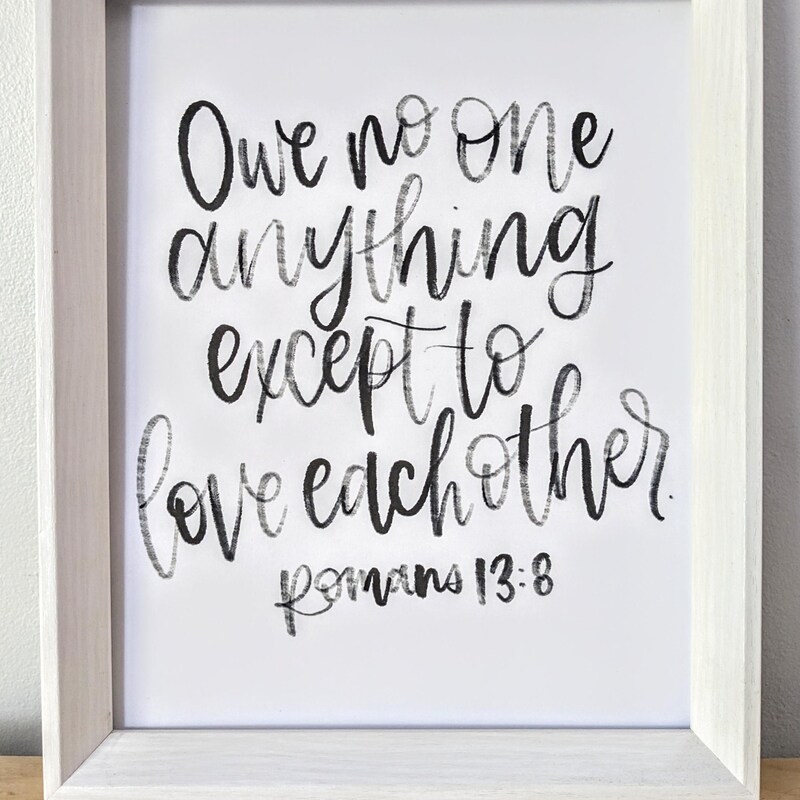 Owe no one
anything
except to
love each other.
Romans 13:8